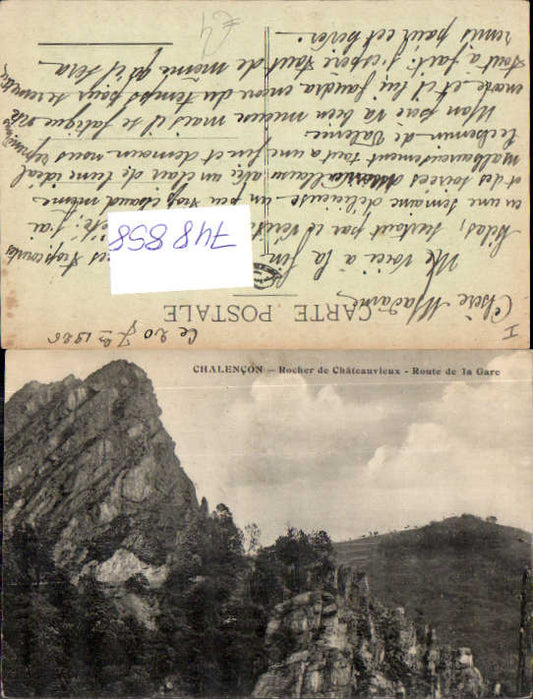 I
Ce 20 1926
CARTE POSTALE
Chère Madame
Me voici à la fin
hélas, surtout par ce
748 858
eu une semaine délicieuse un peu trop chaud même
et des soirées au clair de lune idéal
malheureusement tout a une fin et demain nous reprenons
le chemin de Valence
Mon père va bien mieux mais il se fatigue vite
encore et il lui faudra encore du temps pour se remettre
tout à fait. J'espère tout de même qu'il sera
remis pour cet hiver.
£4
CHALENÇON — Rocher de Châteauvieux - Route de la Gare